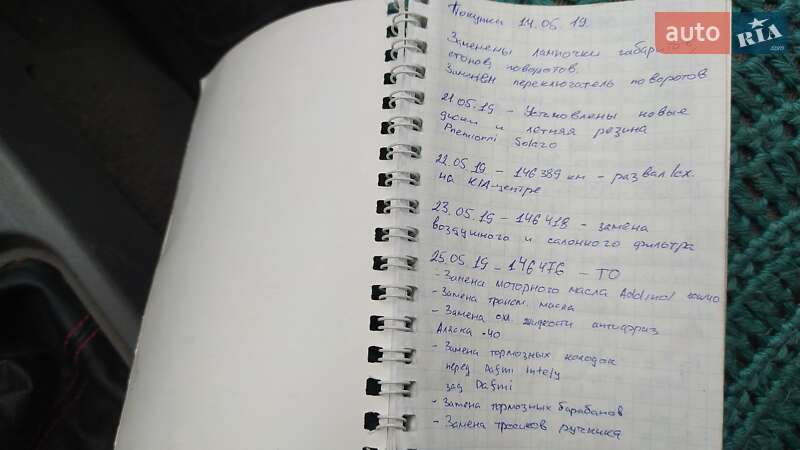 auto RIA .com
Покупки 14.05.19.
Заменены лампочки габаритов,
стопов, поворотов.
Заменён переключатель поворотов
21.05.19 - Установлены новые
диски и летняя резина
Premiorri Solazo
22.05.19 - 146389 км - развал/сх.
на KIA-центре
23.05.19 - 146418 - замена
воздушного и салонного фильтра
25.05.19 - 146476 - ТО
- Замена моторного масла Addinol
- Замена трансм. масла
- Замена охл. жидкости антифриз
Аляска -40
- Замена тормозных колодок
перед Dafmi Intelli
зад Dafmi
- Замена тормозных барабанов
- Замена тросиков ручника